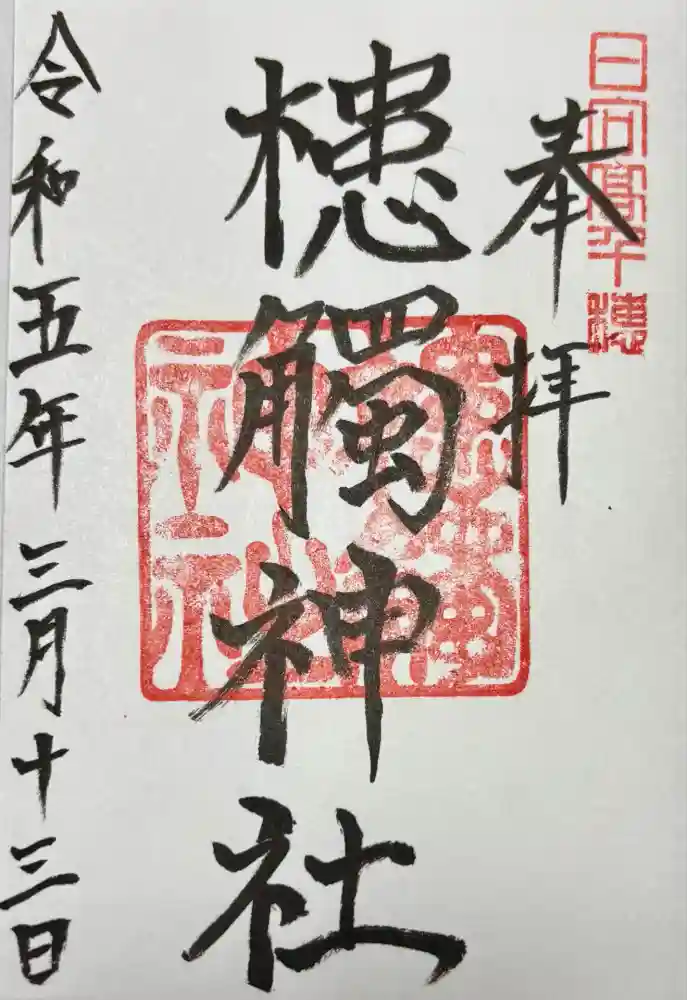 日向高千穂
奉拝
槵觸神社
令和五年三月十三日